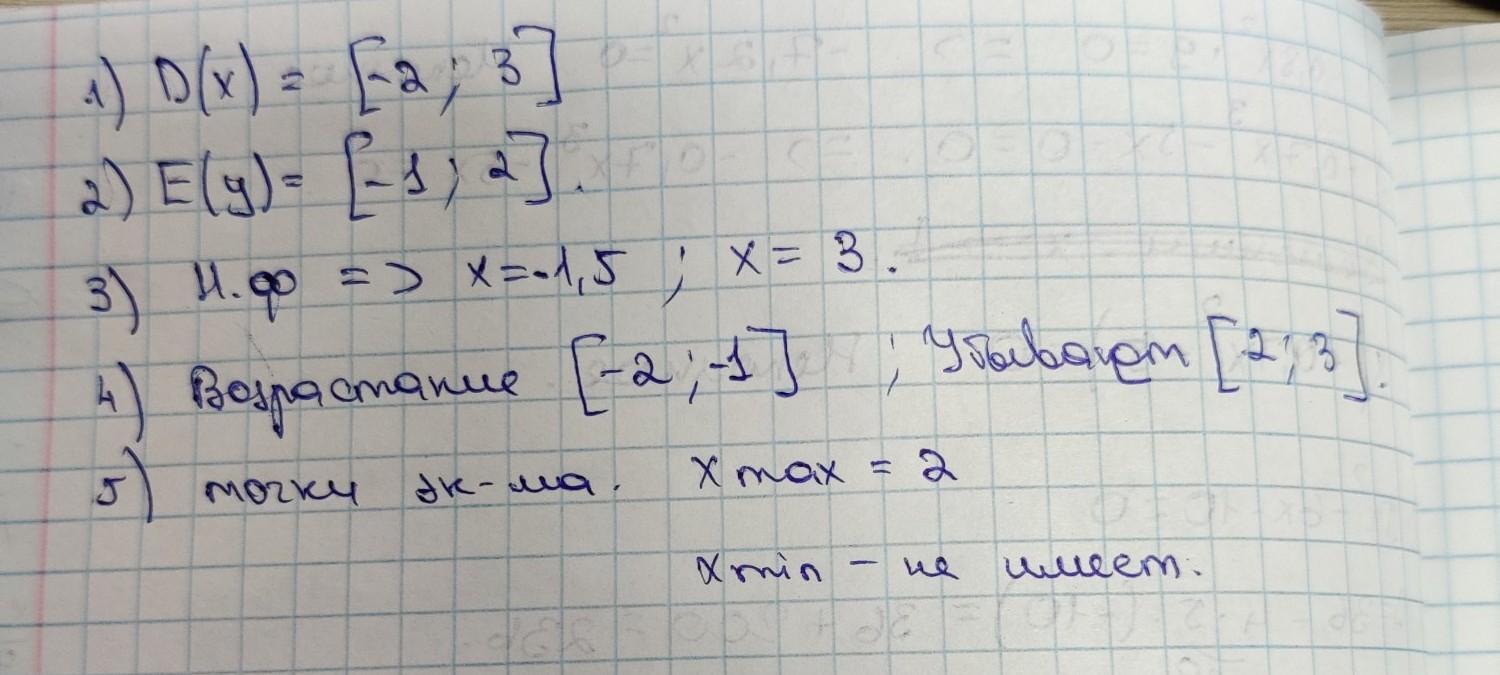 1) D(x) = [-2; 3]
2) E(y) = [-1; 2].
3) Н.ф => x=-1,5 ; x = 3.
4) Возрастание [-2;-1] ; Убывает [2;3].
5) точки эк-ма. xmax = 2
xmin - не имеет.